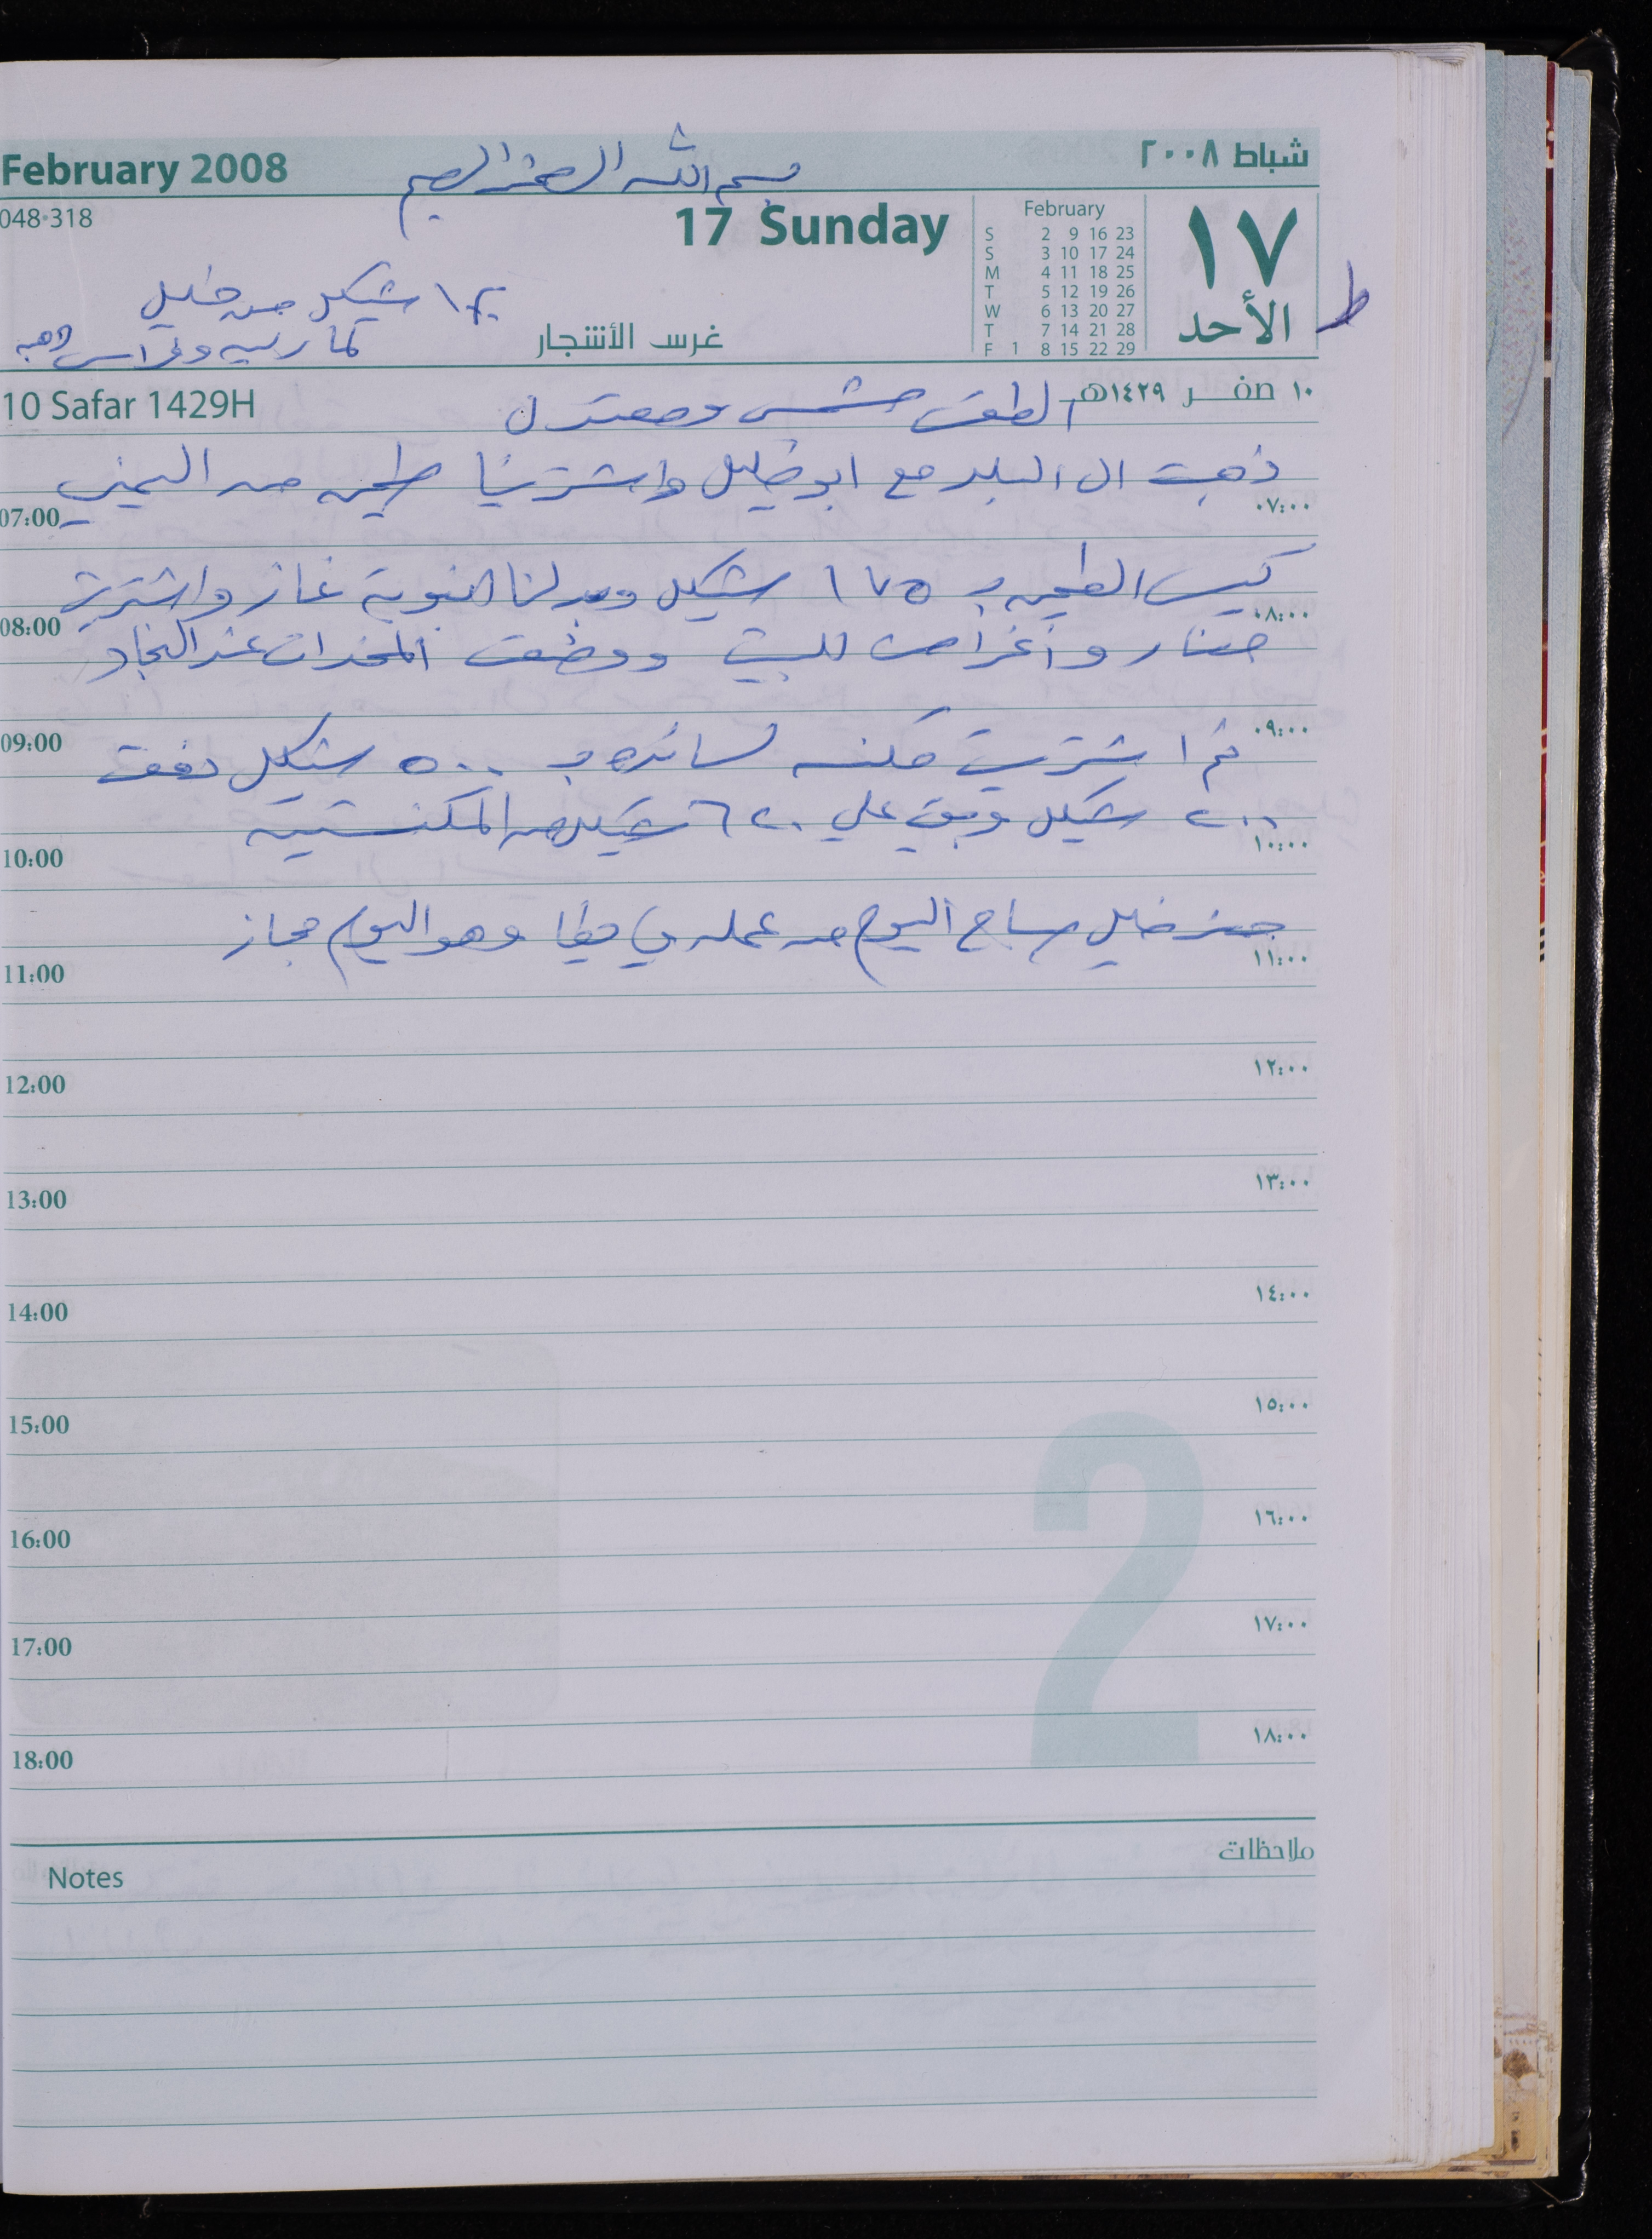 بسم الله الرحمن الرحيم
February 2008
شباط ٢٠٠٨
048-318
17 Sunday
February
S 2 9 16 23
S 3 10 17 24
M 4 11 18 25
T 5 12 19 26
W 6 13 20 27
T 7 14 21 28
F 1 8 15 22 29
١٧
الأحد
ط
شيكل من خليل
غرس الأشجار
10 Safar 1429H
١٠ صفر ١٤٢٩هـ
الطقس مشمس ومعتدل
ذهبت الى البلد مع ابو خليل واشترينا طحين من اليمني
07:00 ٠٧:٠٠
كيس الطحين بـ ١٧٥ شيكل وبدلنا انبوبة غاز واشتريت
08:00 ٠٨:٠٠
خضار وأغراض للبيت ووضعت المخدات عند النجاد
09:00 ٠٩:٠٠
ثم اشتريت مكنسه لسائده بـ ٥٠٠ شيكل دفعت
٢٠٠ شيكل وبقي علي ٦٢٠ شيكل من المكنستين
10:00 ١٠:٠٠
حضر خليل صباح اليوم من عمله في حيفا وهو اليوم مجاز
11:00 ١١:٠٠
12:00 ١٢:٠٠
13:00 ١٣:٠٠
14:00 ١٤:٠٠
15:00 ١٥:٠٠
16:00 ١٦:٠٠
17:00 ١٧:٠٠
18:00 ١٨:٠٠
2
Notes
ملاحظات